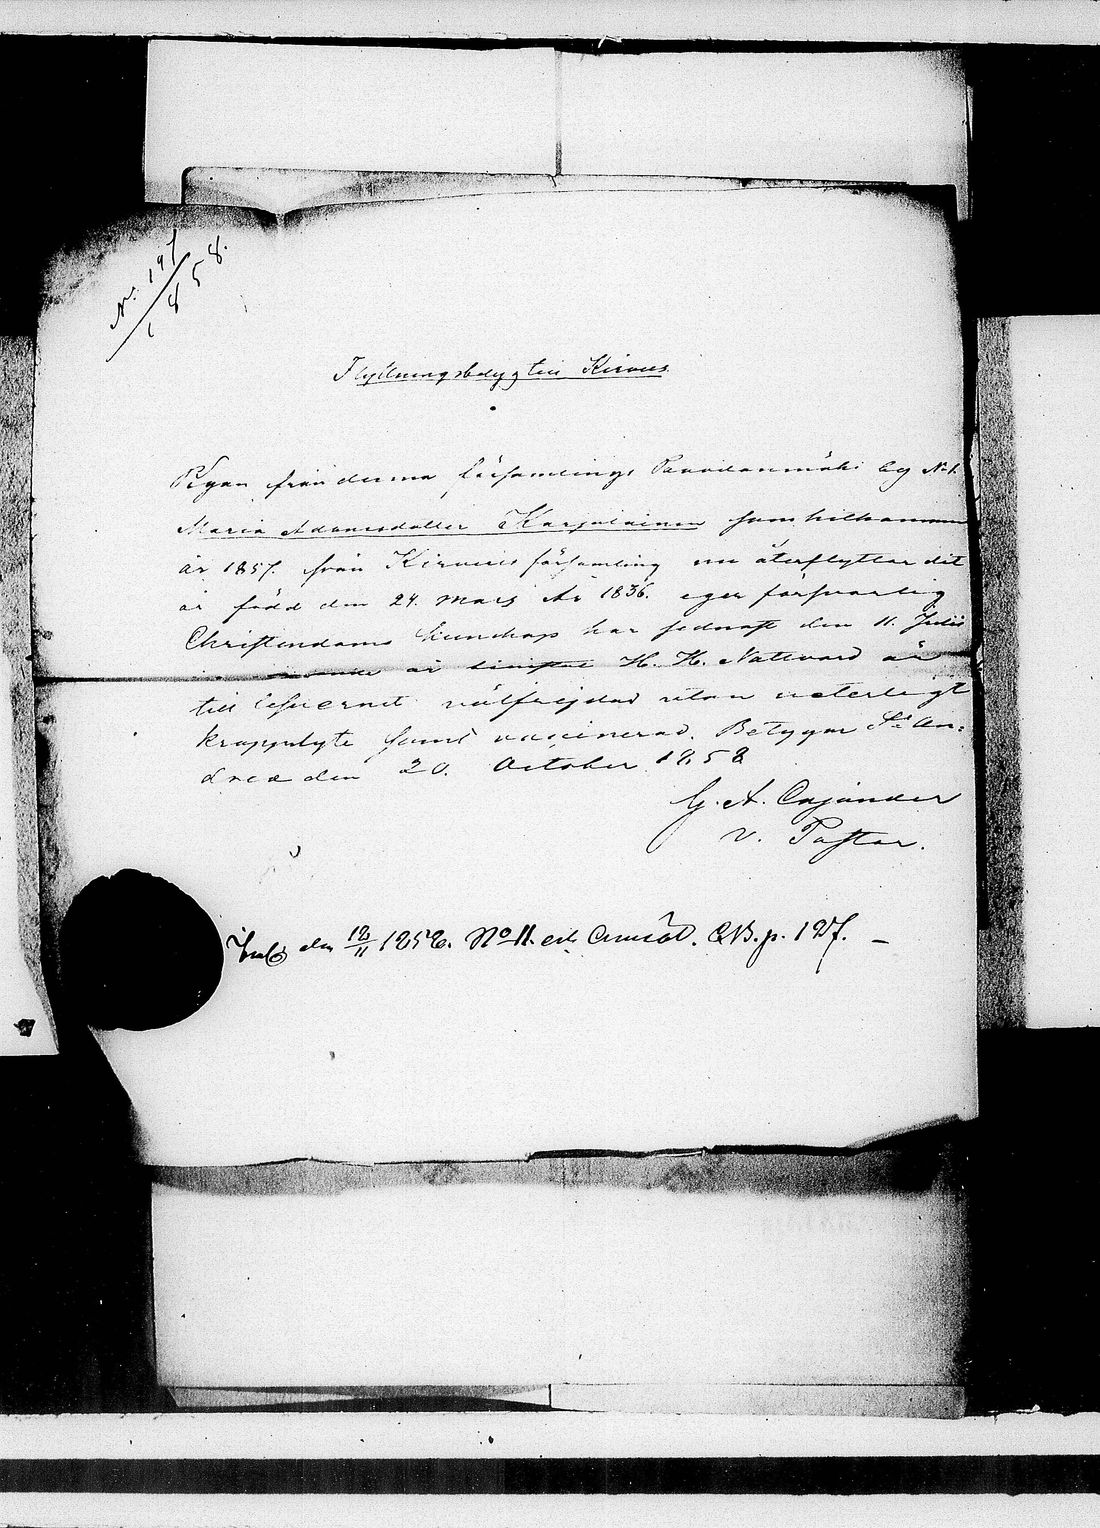 No. 197
1858.
Flyttningsbetyg till Kirvus
Pigan från denna församlings Paavolanmäki by No 1.
Maria Adamsdotter Karjalainen som hitkommen
år 1857. från Kirvus församling nu återflyttar dit
är född den 24. Mars År 1836. eger försvarlig
Christendoms kundskap har sednast den 11. Julii
år H. H. Nattvard är
till lefvernet välfrejdad utan veterligt
kroppslyte samt vaccinerad. Betygar St An-
dreæ den 20. October 1858
G. A. Cajander
V. Pastor.
den 12/11 1858. No 11. C.B. p. 127. –